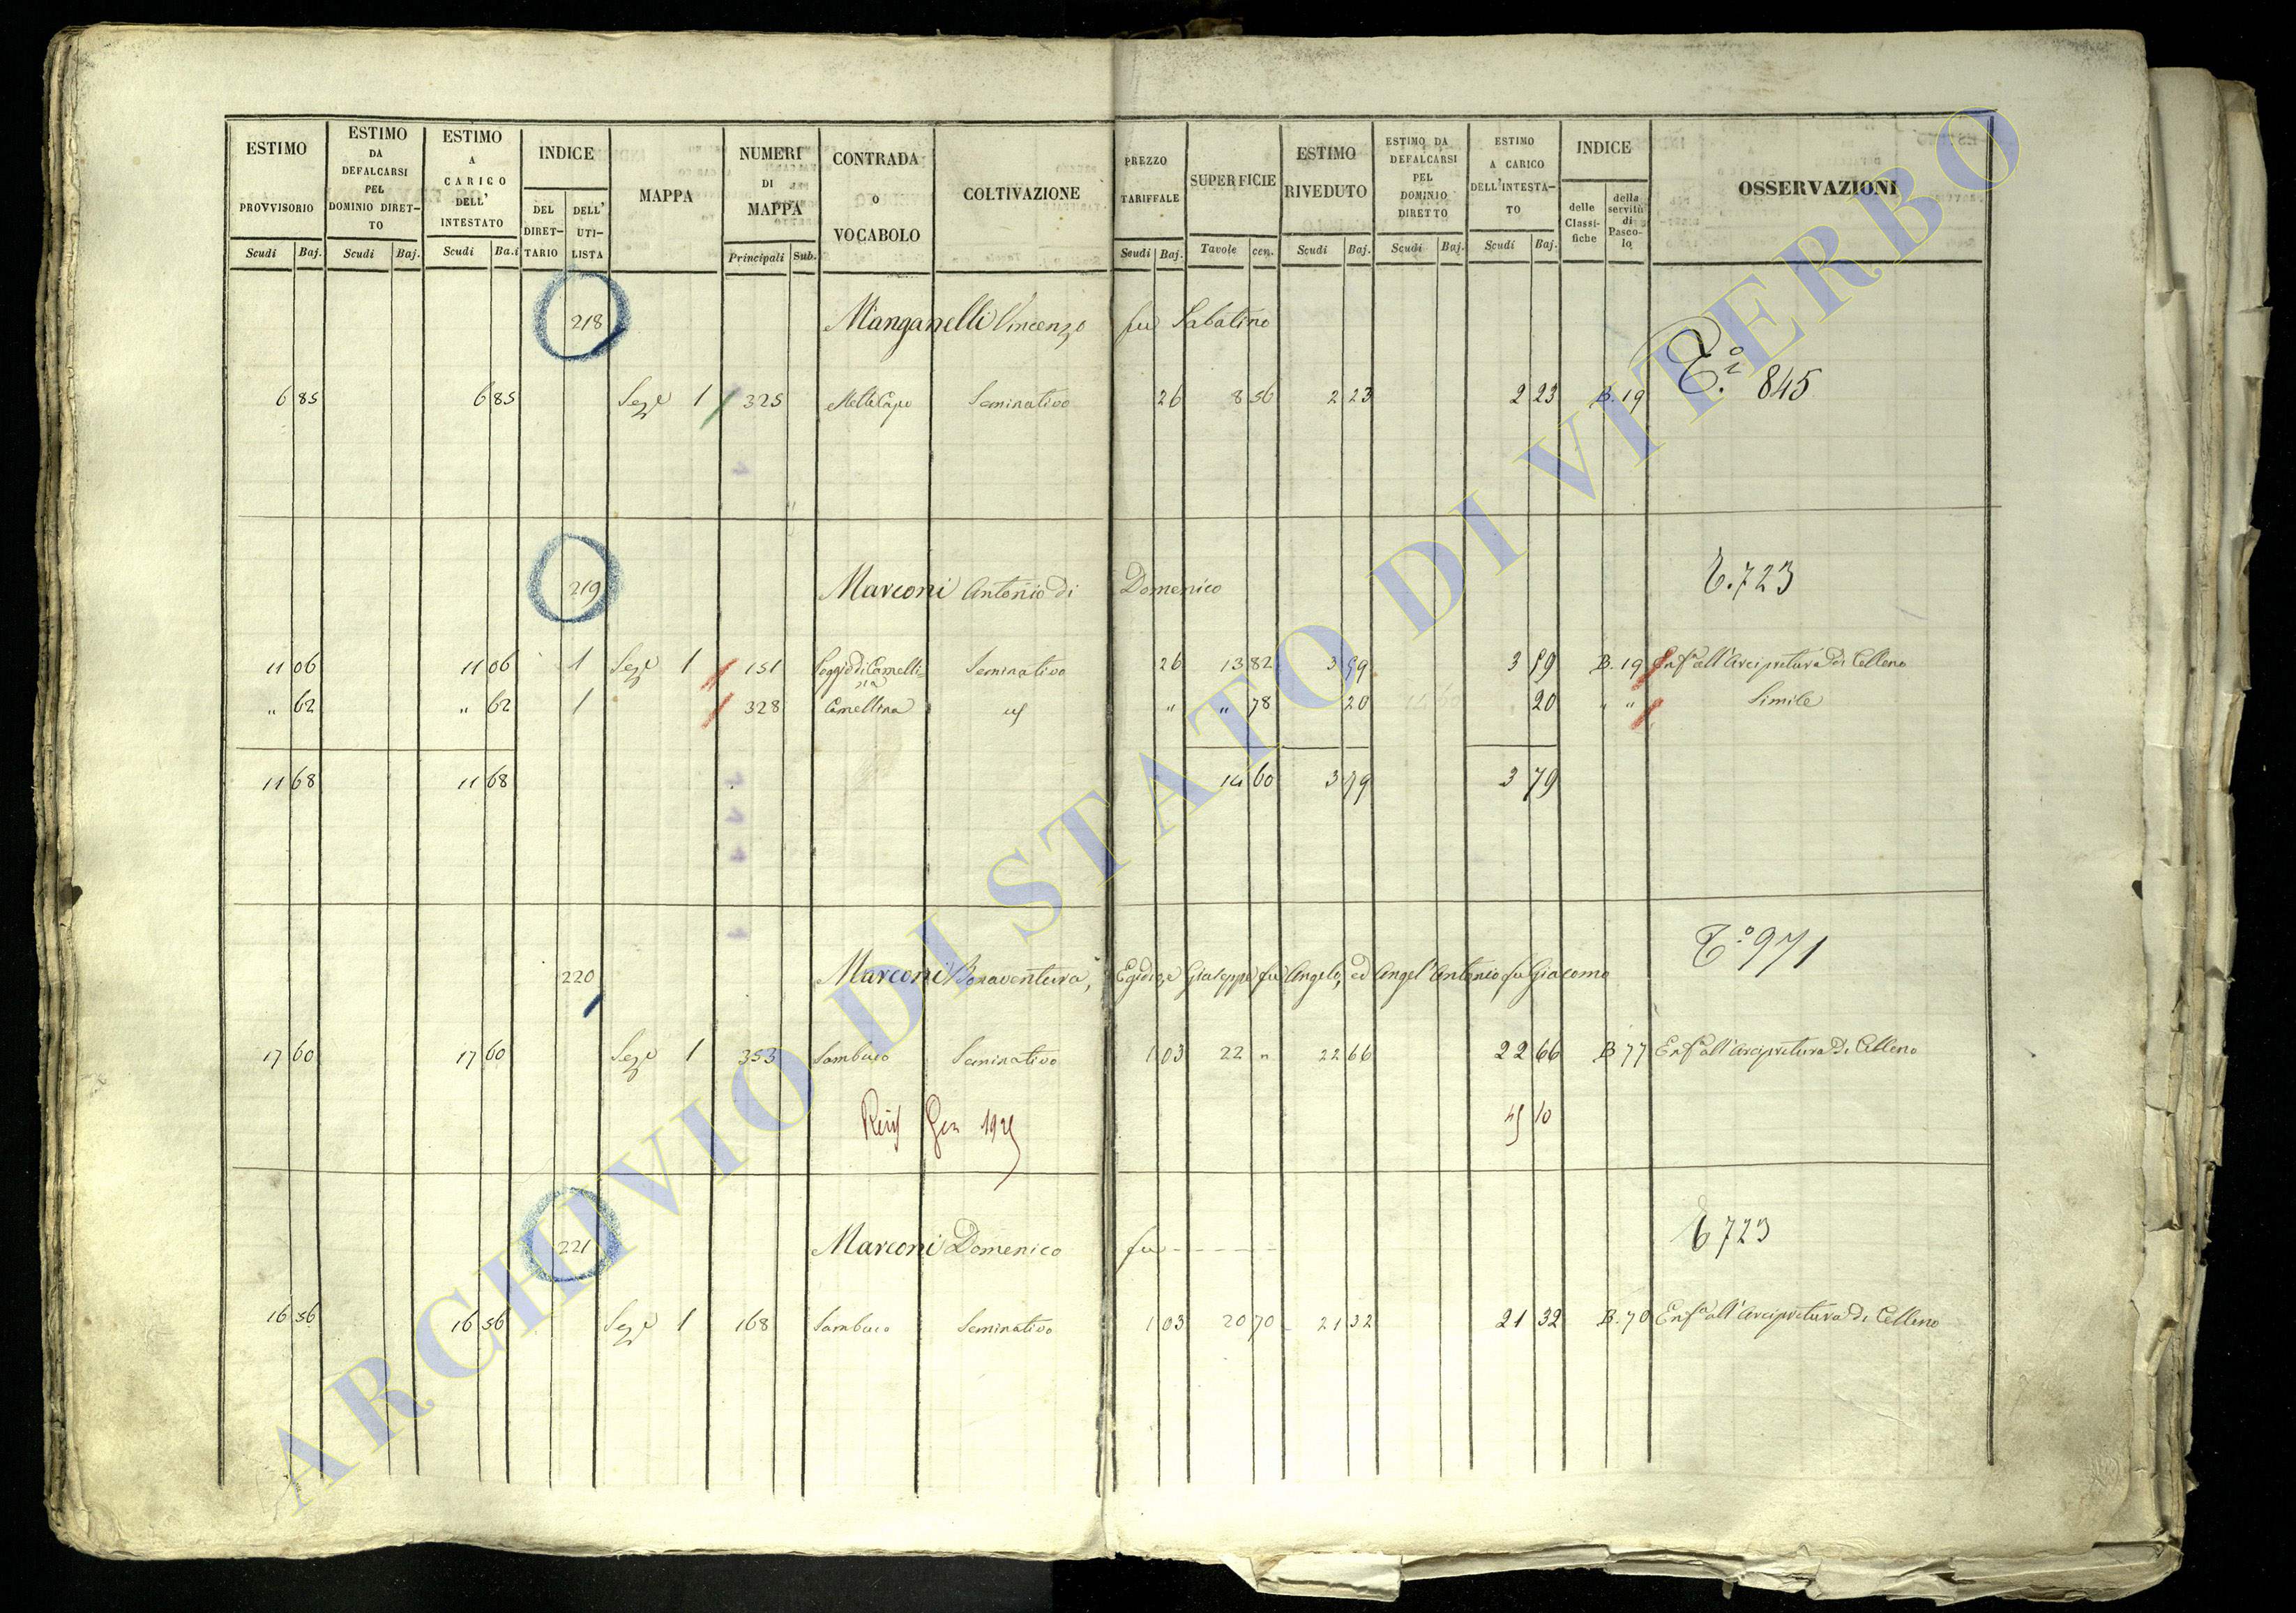 ESTIMO PROVVISORIO Scudi Baj. ESTIMO DA DEFALCARSI PEL DOMINIO DIRETTO Scudi Baj. ESTIMO A CARICO DELL' INTESTATO Scudi Ba.i INDICE DEL DIRETTARIO DELL' UTILISTA MAPPA NUMERI DI MAPPA Principali Sub. CONTRADA o VOCABOLO COLTIVAZIONE PREZZO TARIFFALE Scudi Baj. SUPERFICIE Tavole cen. ESTIMO RIVEDUTO Scudi Baj. ESTIMO DA DEFALCARSI PEL DOMINIO DIRETTO Scudi Baj. ESTIMO A CARICO DELL'INTESTATO Scudi Baj. INDICE delle Classifiche della servitù di Pascolo OSSERVAZIONI
218 Manganelli Vincenzo fu Sabatino
6 85 6 85 Sez.e 1 325 Seminativo 26 8 56 2 23 2 23 B. 19 845
219 Marconi Antonio di Domenico 723
11 06 11 06 1 Sez.e 1 151 Poggio di Camellina Seminativo 26 13 82 3 59 3 59 B. 19 Enf.a all'Arcipretura di Celleno
" 62 " 62 1 328 Camellina " " 78 20 20 " " Simile
11 68 11 68 14 60 3 79 3 79
220 Marconi Bonaventura, Egidio, e Giuseppe fu Angelo, ed Angel'Antonio fu Giacomo 971
17 60 17 60 Sez.e 1 353 Sambuco Seminativo 1 03 22 " 22 66 22 66 B 77 Enf.a all'Arcipretura di Celleno
45 10
221 Marconi Domenico fu - - - - - 723
16 56 16 56 Sez.e 1 168 Sambuco Seminativo 1 03 20 70 21 32 21 32 B. 70 Enf.a all'Arcipretura di Celleno
ARCHIVIO DI STATO DI VITERBO